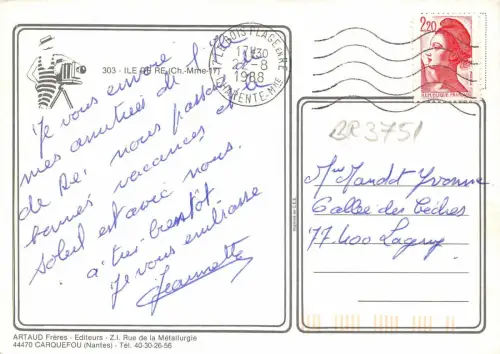 303 - ILE DE RE (Ch.-Mme-17)
Je vous envoie
mes amitiés de l'île
de Ré, nous passons de
bonnes vacances et
soleil est avec nous.
à très bientôt
Je vous embrasse
Jeannette
LE BOIS PLAGE EN RE
17H30
22-8
1988
CHARENTE-MME
2,20
REPUBLIQUE FRANÇAISE
BR3751
Mme Mandet Yvonne
6 allée des Cèdres
77400 Lagny
ARTAUD Frères - Editeurs - Z.I. Rue de la Métallurgie
44470 CARQUEFOU (Nantes) - Tél. 40-30-26-56